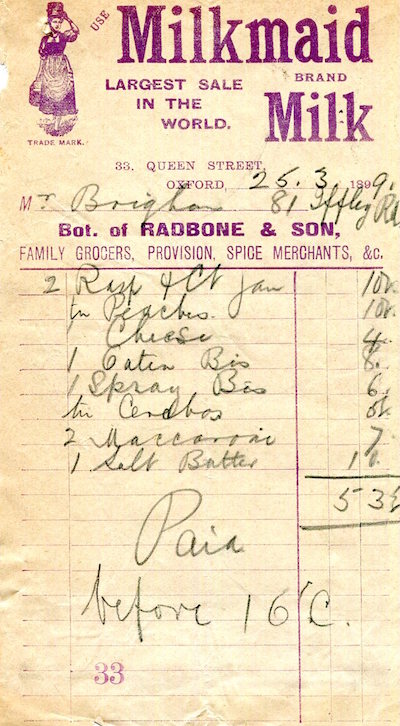 USE Milkmaid
BRAND
LARGEST SALE
IN THE
WORLD.
Milk
TRADE MARK.
33. QUEEN STREET,
OXFORD, 25. 3. 1899.
Mr Brigham 81 Iffley Rd
Bot. of RADBONE & SON,
FAMILY GROCERS, PROVISION, SPICE MERCHANTS, &c.
2 Rasp & Ct Jam 10½
tn Peaches. 10½
Cheese 4.
1 Oaten Bis 8.
1 Spray Bis 6
tn Cerebos
2 Maccaroni 7
1 Salt Butter 1
5 3½
Paid
before 16 C.
33